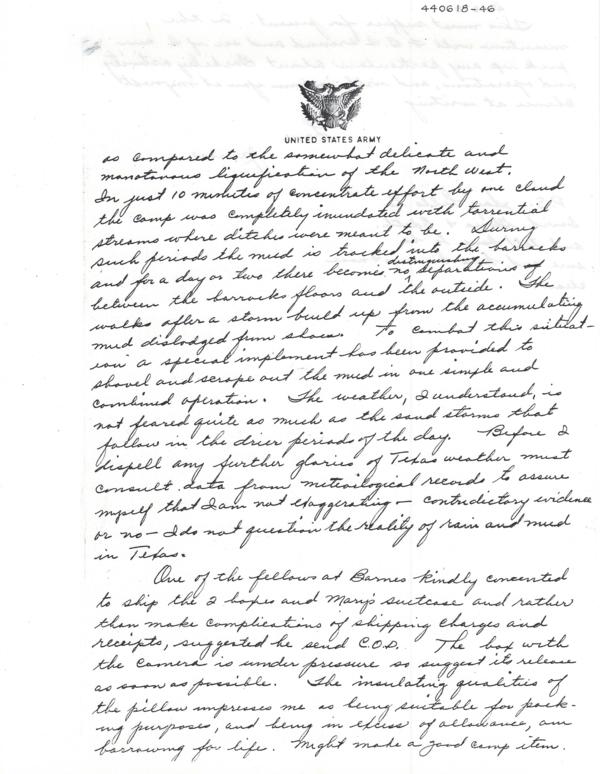 440618-46
UNITED STATES ARMY
as compared to the somewhat delicate and
monotonous liquification of the North West.
In just 10 minutes of concentrate effort by one cloud
the camp was completely inundated with torrential
streams where ditches were meant to be. During
such periods the mud is tracked into the barracks
distinguishing
and for a day or two there becomes no separations of
between the barracks floors and the outside. The
walks after a storm build up from the accumulating
mud dislodged from shoes. To combat this situat-
ion a special implement has been provided to
shovel and scrape out the mud in one simple and
combined operation. The weather, I understand, is
not feared quite as much as the sand storms that
follow in the drier periods of the day. Before I
dispell any further glories of Texas weather must
consult data from meteilogical records to assure
myself that I am not exaggerating - contridictory evidence
or no - I do not question the reality of rain and mud
in Texas.
One of the fellows at Barnes kindly concented
to ship the 2 boxes and Mary's suitcase and rather
than make complications of shipping charges and
receipts, suggested he send C.O.D. The box with
the camera is under pressure so suggest its release
as soon as possible. The insulating qualities of
the pillow impresses me as being suitable for pack-
ing purposes, and being in excess of allowance, am
borrowing for life. Might make a good camp item.